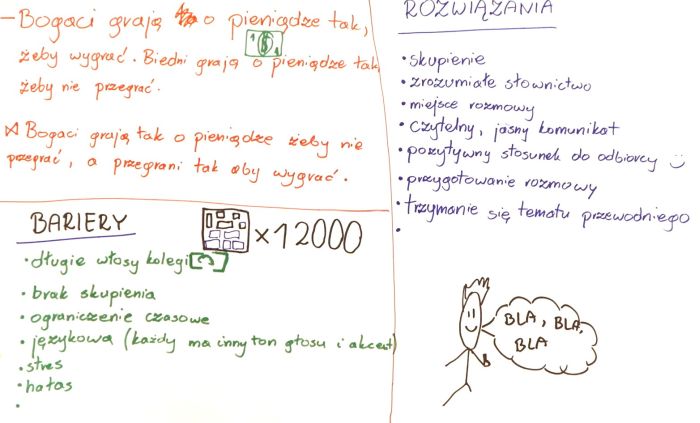 – Bogaci grają o pieniądze tak,
żeby wygrać. Biedni grają o pieniądze tak,
żeby nie przegrać.
Bogaci grają tak o pieniądze żeby nie
przegrać, a przegrani tak aby wygrać.
BARIERY
x12000
• długie włosy kolegi
• brak skupienia
• ograniczenie czasowe
• językowa (każdy ma inny ton głosu i akcent)
• stres
• hałas
•
ROZWIĄZANIA
• skupienie
• zrozumiałe słownictwo
• miejsce rozmowy
• czytelny, jasny komunikat
• pozytywny stosunek do odbiorcy
• przygotowanie rozmowy
• trzymanie się tematu przewodniego
•
BLA, BLA,
BLA